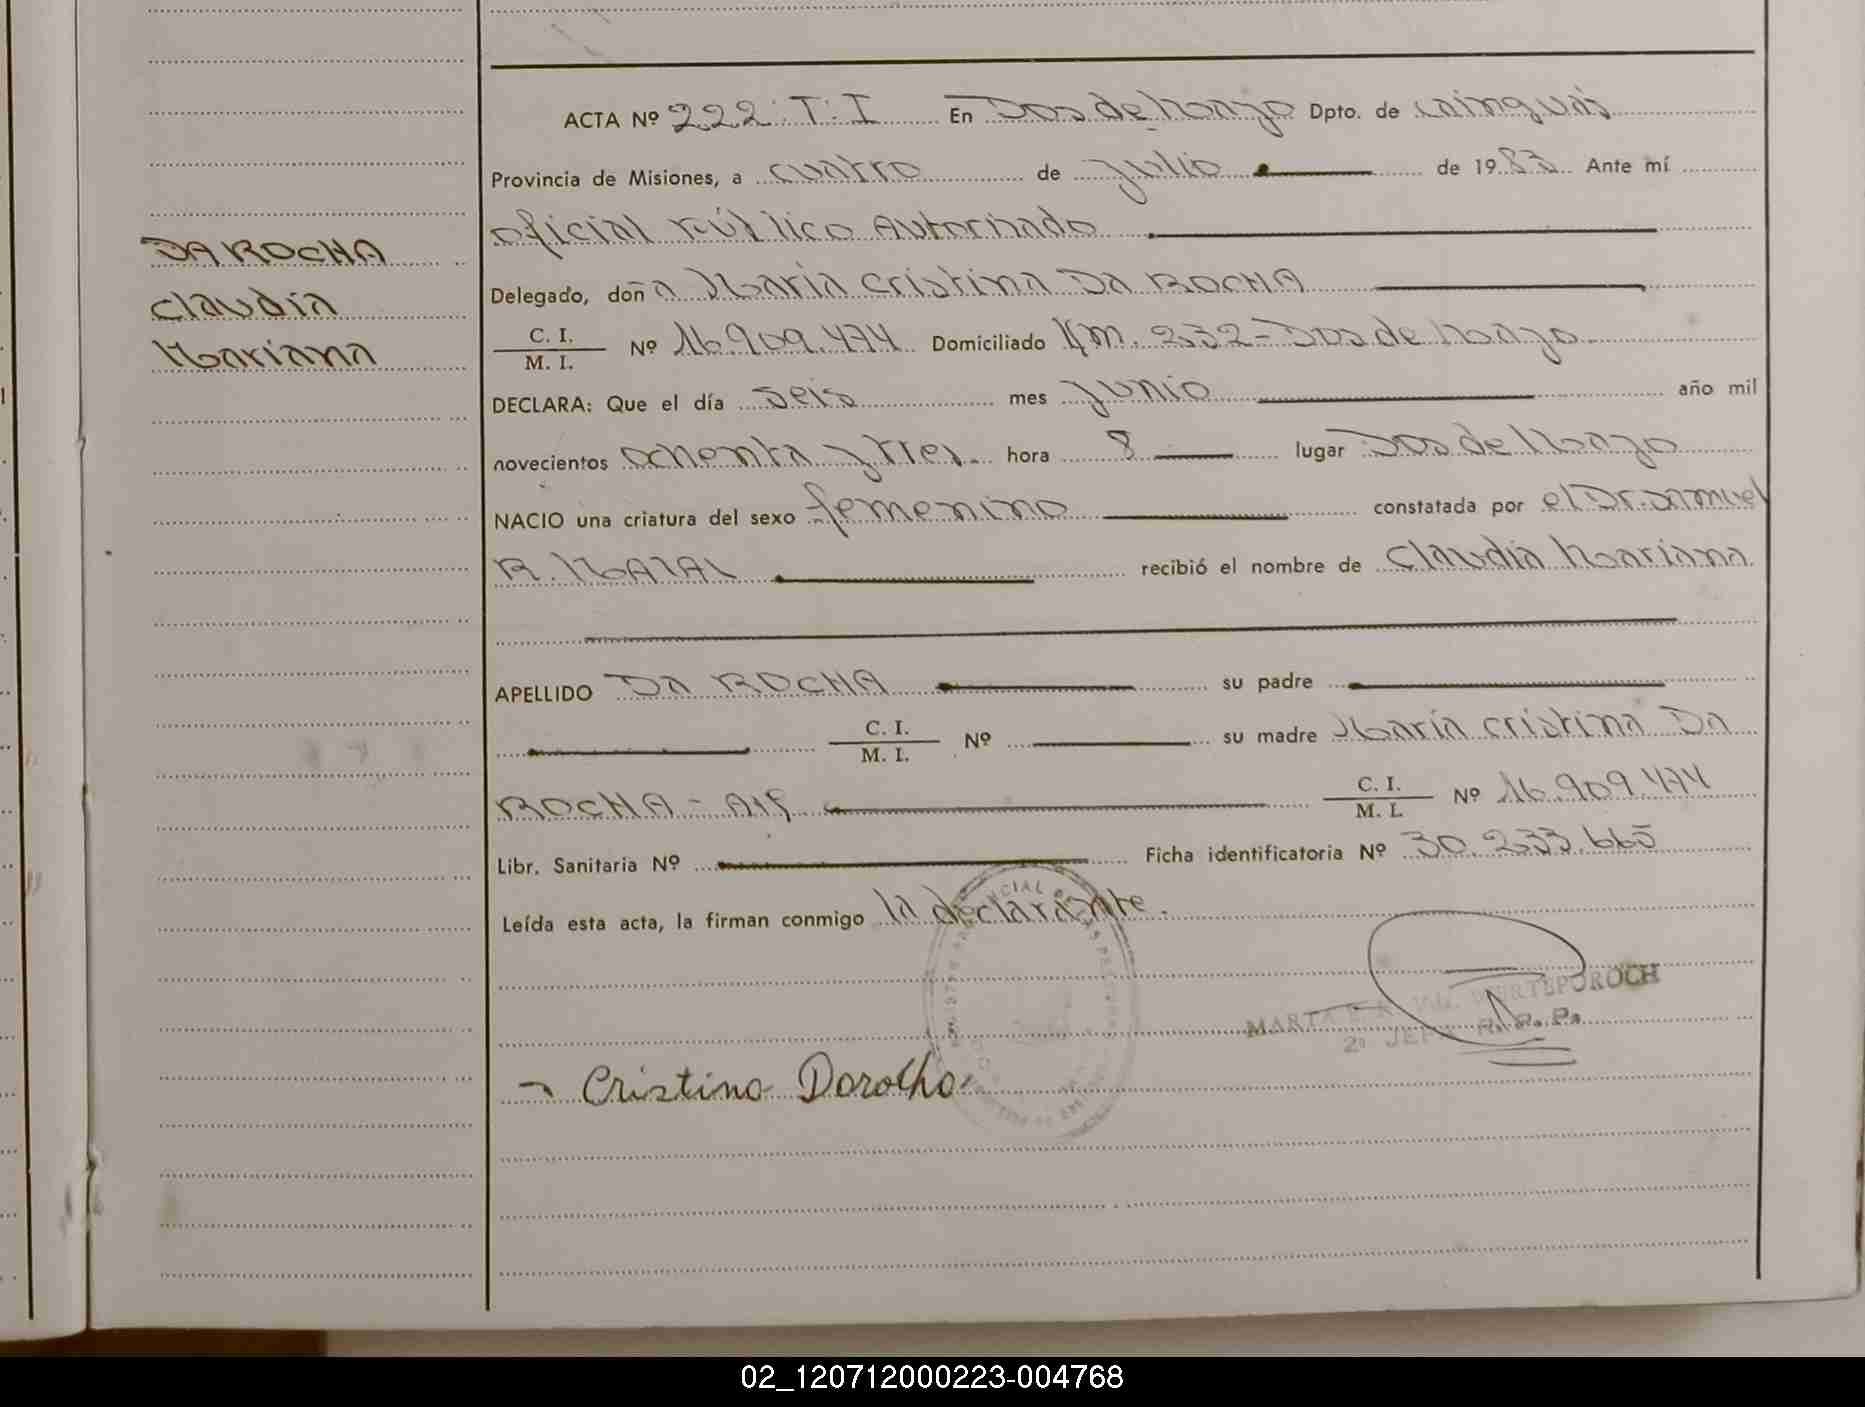 ACTA Nº 222 T: I En Dos de Mayo Dpto. de Cainguás
Provincia de Misiones, a cuatro de Julio de 1983 Ante mí
oficial Público Autorizado
DA ROCHA
Claudia
Mariana
Delegado, doña Maria Cristina DA ROCHA
C. I.
M. I.
Nº 16.909.474 Domiciliado Km. 232 - Dos de Mayo
DECLARA: Que el día seis mes junio año mil
novecientos ochenta y tres. hora 8 lugar Dos de Mayo
NACIO una criatura del sexo femenino constatada por el Dr. Samuel
R. recibió el nombre de Claudia Mariana
APELLIDO DA ROCHA su padre
C. I.
M. I.
Nº su madre María Cristina DA
ROCHA - Arg. C. I.
M. I.
Nº 16.909.474
Libr. Sanitaria Nº Ficha identificatoria Nº 30.233.665
Leída esta acta, la firman conmigo la declarante.
MARTA
2º JEFE R. P. P.
Cristina Darocha
02_120712000223-004768